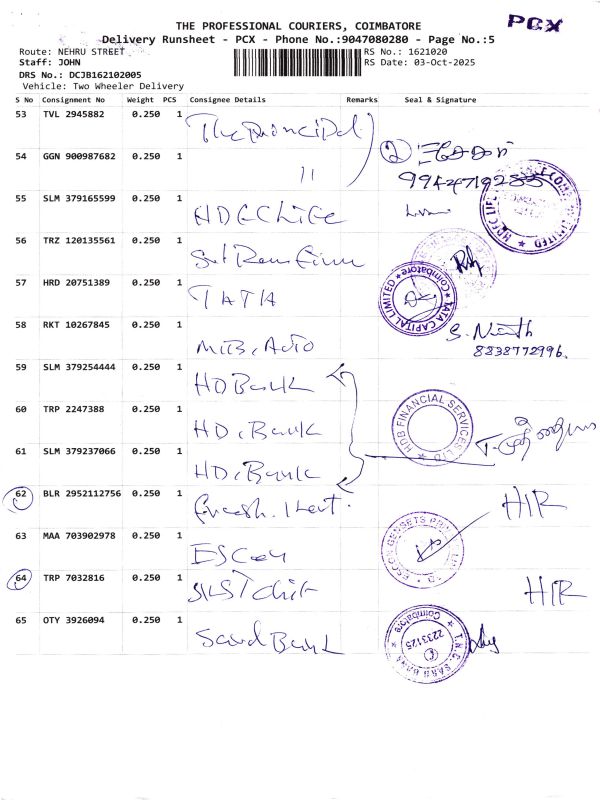 PCX
THE PROFESSIONAL COURIERS, COIMBATORE
Delivery Runsheet - PCX - Phone No.:9047080280 - Page No.:5
Route: NEHRU STREET
RS No.: 1621020
Staff: JOHN
RS Date: 03-Oct-2025
DRS No.: DCJB162102005
Vehicle: Two Wheeler Delivery
S No Consignment No Weight PCS Consignee Details Remarks Seal & Signature
53 TVL 2945882 0.250 1 The Principal
54 GGN 900987682 0.250 1 11 2
55 SLM 379165599 0.250 1 HDFC Life
56 TRZ 120135561 0.250 1
57 HRD 20751389 0.250 1 TATA
TATA CAPITAL LIMITED ★ Coimbatore ★
58 RKT 10267845 0.250 1 MTB. Auto
8838772996.
59 SLM 379254444 0.250 1 HD Bank
60 TRP 2247388 0.250 1 HD. Bank
HDB FINANCIAL SERVICES LTD ★
61 SLM 379237066 0.250 1 HD. Bank
62 BLR 2952112756 0.250 1 HIR
63 MAA 703902978 0.250 1
64 TRP 7032816 0.250 1 HIR
65 OTY 3926094 0.250 1 Bank
Coimbatore